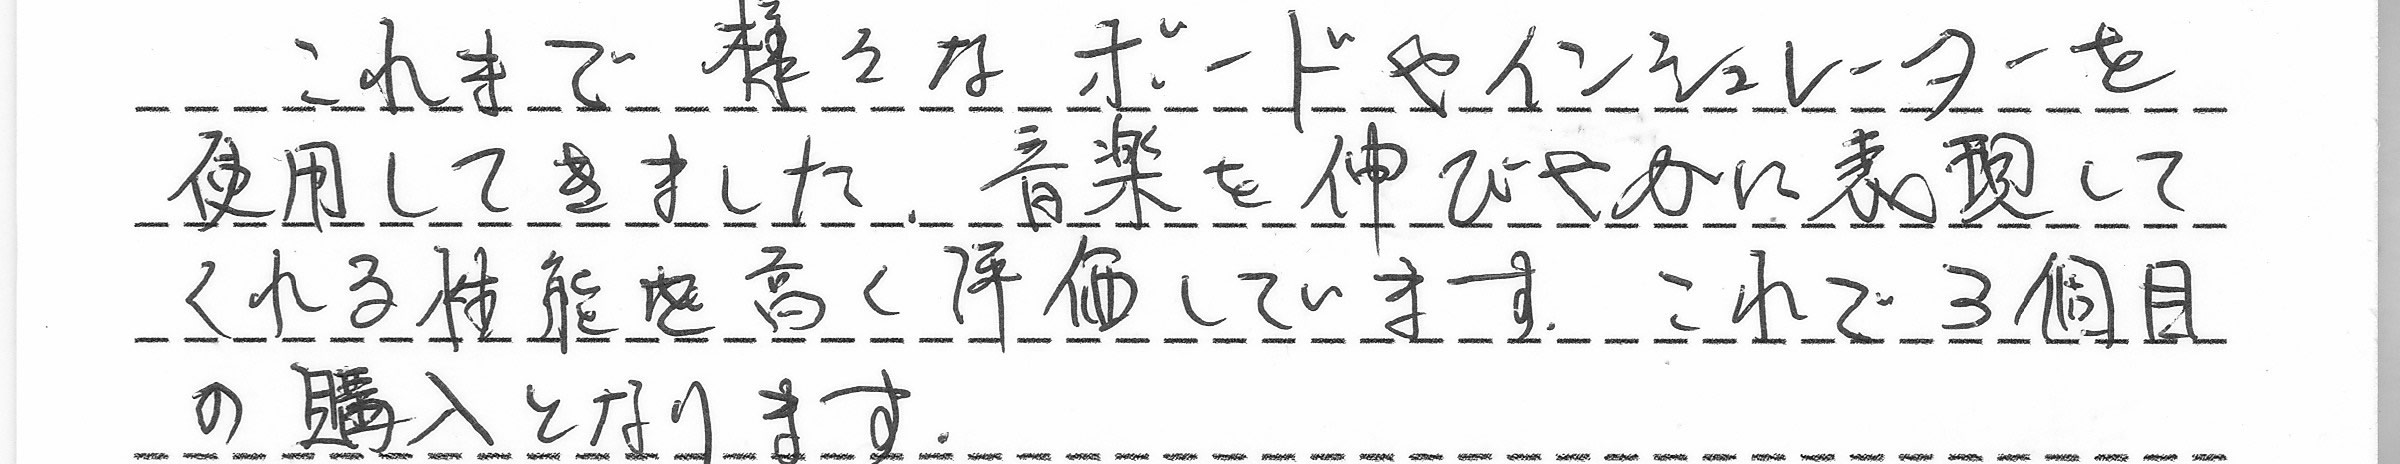 これまで様々なボードやインシュレーターを
使用してきました. 音楽を伸びやかに表現して
くれる性能を高く評価しています. これで3個目
の購入となります.